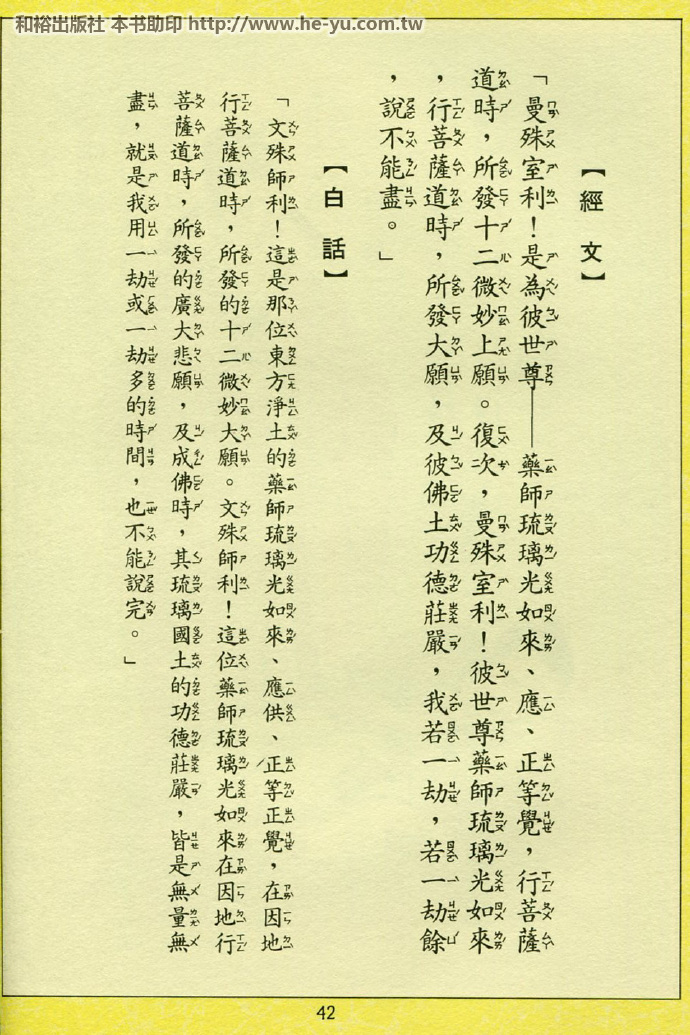 和裕出版社 本书助印 http://www.he-yu.com.tw
【經文】
「曼殊室利！是為彼世尊——藥師琉璃光如來、應、正等覺，行菩薩
道時，所發十二微妙上願。復次，曼殊室利！彼世尊藥師琉璃光如來
，行菩薩道時，所發大願，及彼佛土功德莊嚴，我若一劫，若一劫餘
，說不能盡。」
【白話】
「文殊師利！這是那位東方淨土的藥師琉璃光如來、應供、正等正覺，在因地
行菩薩道時，所發的十二微妙大願。文殊師利！這位藥師琉璃光如來在因地行
菩薩道時，所發的廣大悲願，及成佛時，其琉璃國土的功德莊嚴，皆是無量無
盡，就是我用一劫或一劫多的時間，也不能說完。」
42